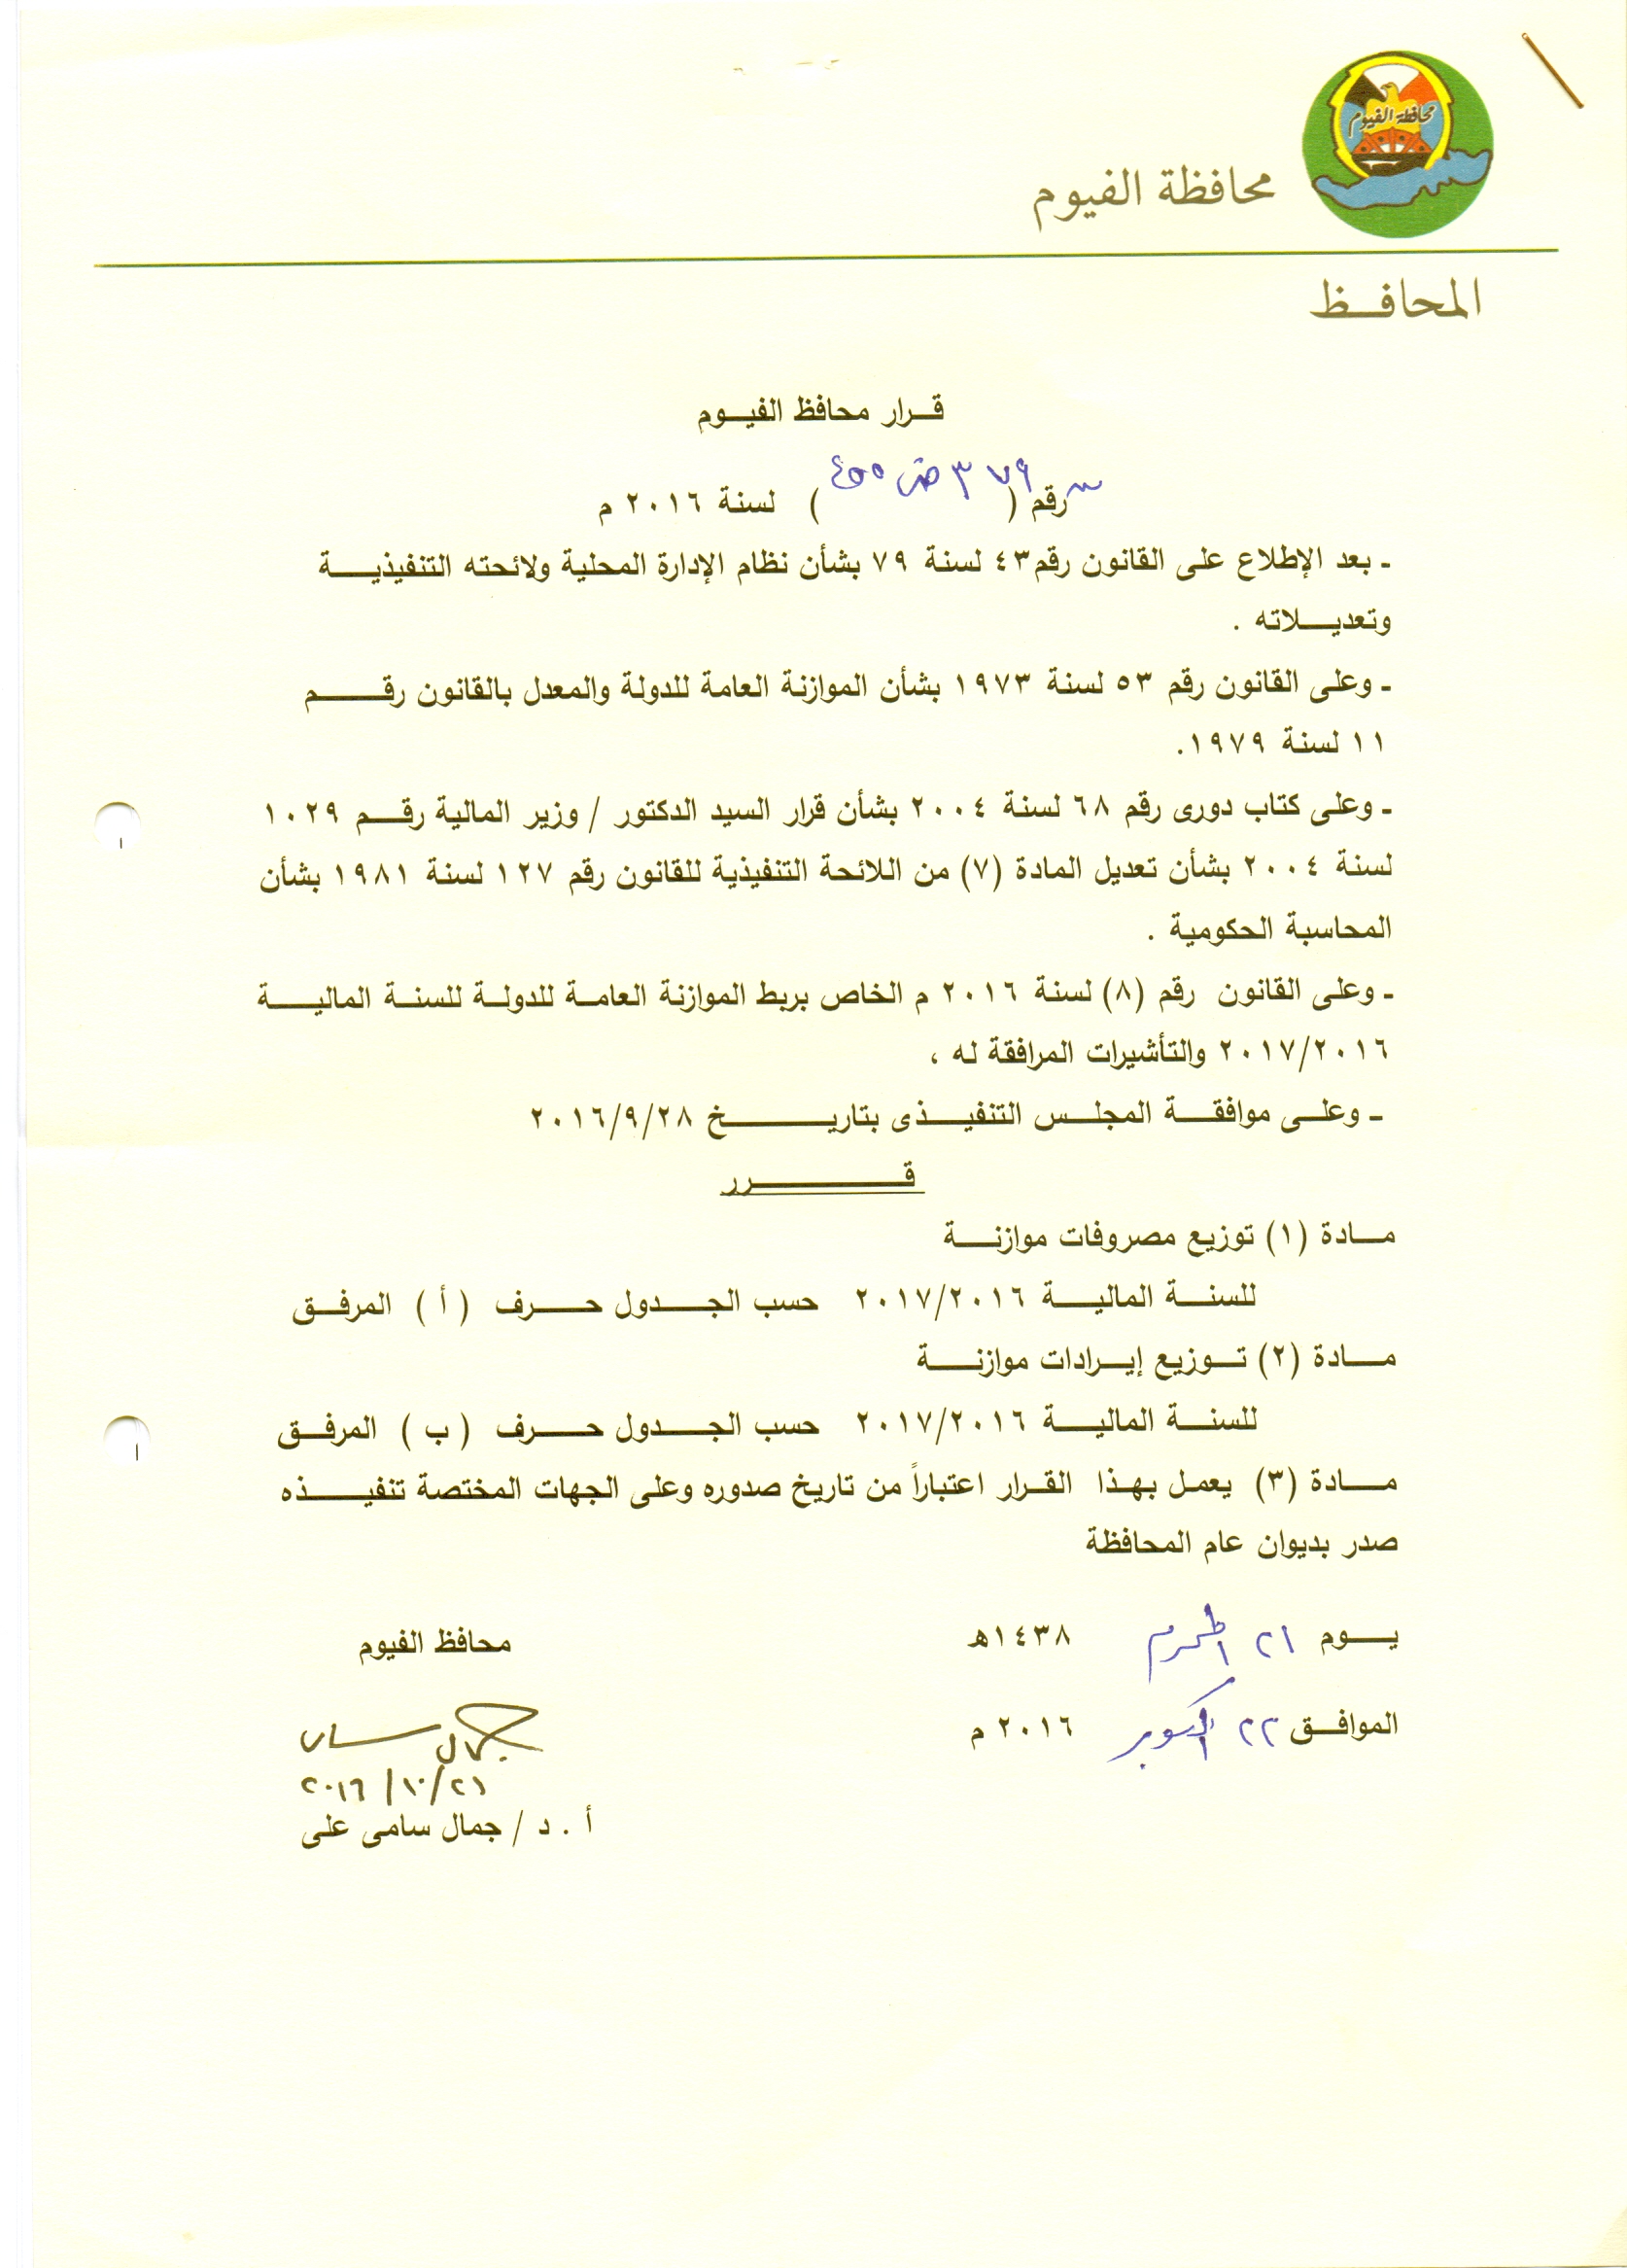 محافظة الفيوم
محافظة الفيوم
المحافـــظ
قـــرار محافظ الفيـــوم
رقم ( ) لسنة ٢٠١٦ م
ـ بعد الإطلاع على القانون رقم٤٣ لسنة ٧٩ بشأن نظام الإدارة المحلية ولائحته التنفيذيـــــة
وتعديـــلاته .
ـ وعلى القانون رقم ٥٣ لسنة ١٩٧٣ بشأن الموازنة العامة للدولة والمعدل بالقانون رقـــــم
١١ لسنة ١٩٧٩.
ـ وعلى كتاب دورى رقم ٦٨ لسنة ٢٠٠٤ بشأن قرار السيد الدكتور / وزير المالية رقـــم ١٠٢٩
لسنة ٢٠٠٤ بشأن تعديل المادة (٧) من اللائحة التنفيذية للقانون رقم ١٢٧ لسنة ١٩٨١ بشأن
المحاسبة الحكومية .
ـ وعلى القانون رقم (٨) لسنة ٢٠١٦ م الخاص بربط الموازنة العامـة للدولـة للسنـة الماليـــــة
٢٠١٧/٢٠١٦ والتأشيرات المرافقة له ،
ـ وعلـى موافقـــة المجلـــس التنفيـــذى بتاريـــــــــخ ٢٠١٦/٩/٢٨
قـــــــــــــــرر
مـــادة (١) توزيع مصروفات موازنـــــة
للسنـــة الماليـــــة ٢٠١٧/٢٠١٦ حسب الجـــدول حـــــرف ( أ ) المرفـــق
مـــادة (٢) تـــوزيع إيـــرادات موازنـــــة
للسنـــة الماليـــــة ٢٠١٧/٢٠١٦ حسب الجـــدول حـــــرف ( ب ) المرفـــق
مـــادة (٣) يعمـل بهـذا القـرار اعتباراً من تاريخ صدوره وعلى الجهات المختصة تنفيـــــذه
صدر بديوان عام المحافظة
يـــوم ٢١ المحرم ١٤٣٨هـ
محافظ الفيوم
الموافـــق ٢٢ اكتوبر ٢٠١٦ م
٢٠١٦/١٠/٢١
أ . د / جمال سامى على